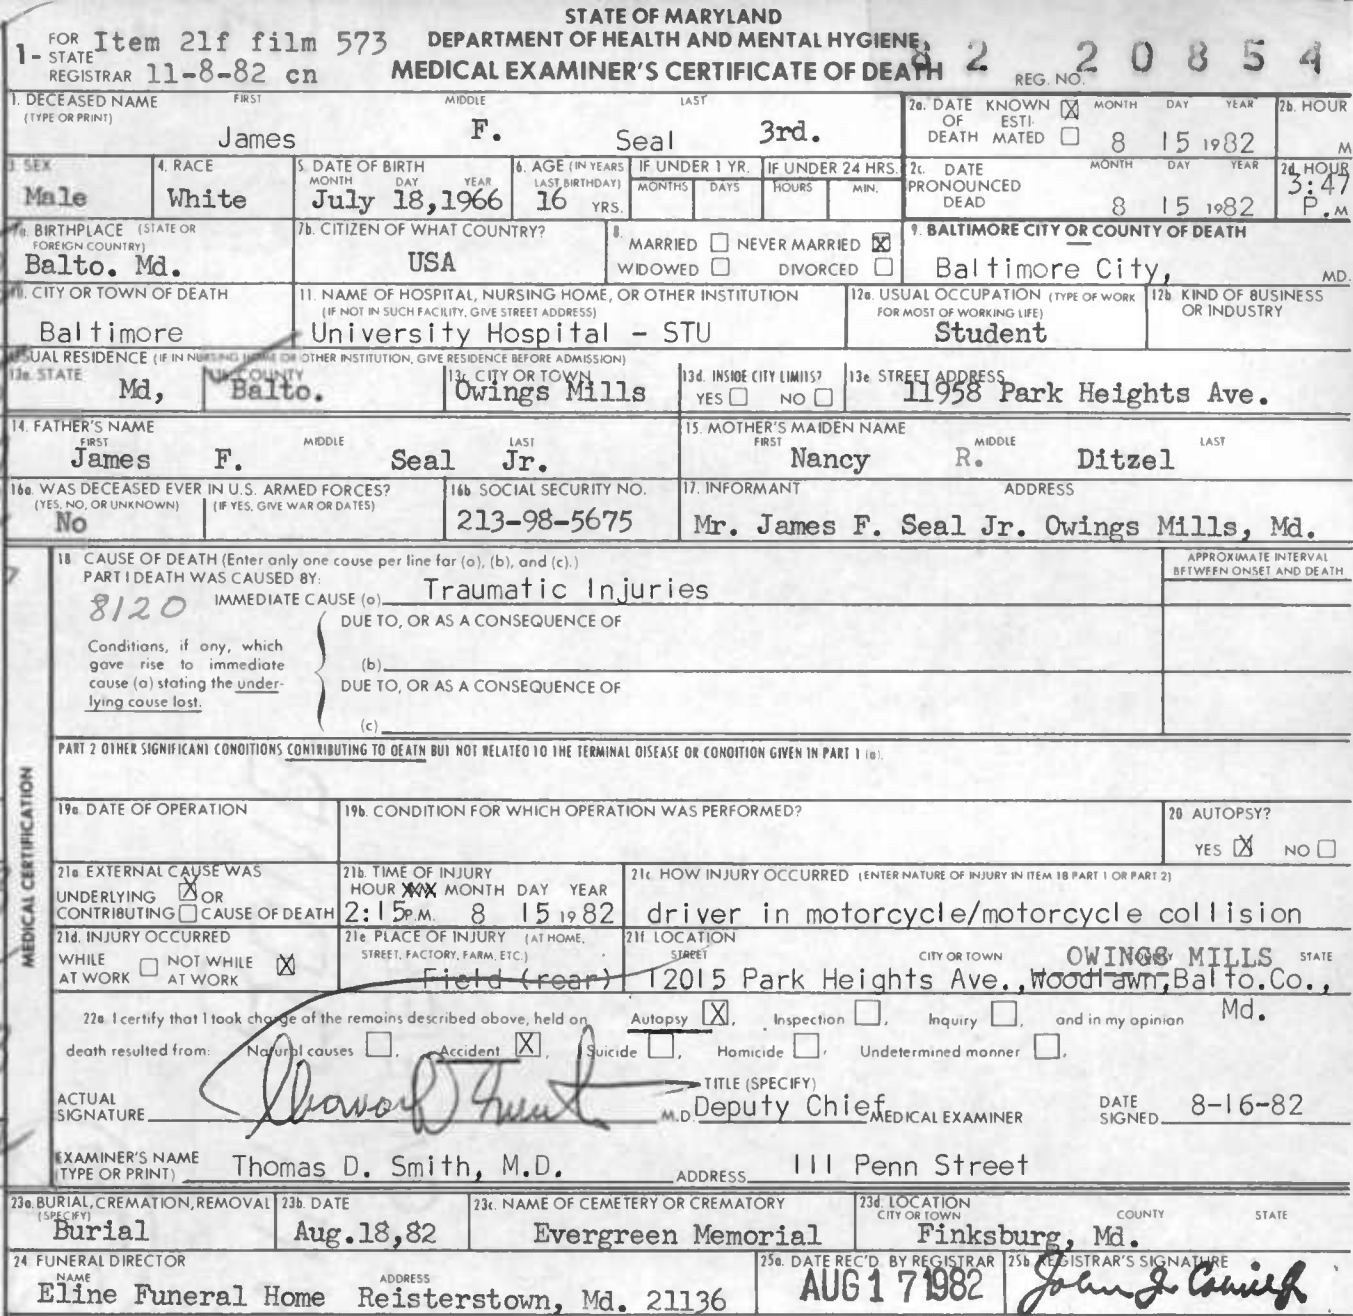 STATE OF MARYLAND
DEPARTMENT OF HEALTH AND MENTAL HYGIENE
MEDICAL EXAMINER'S CERTIFICATE OF DEATH
1- FOR STATE REGISTRAR Item 21f film 573
11-8-82 cn
REG. NO. 82 20854
1. DECEASED NAME (TYPE OR PRINT) FIRST MIDDLE LAST
James F. Seal 3rd.
2a. DATE OF DEATH KNOWN [X] ESTIMATED [ ] MONTH DAY YEAR
8 15 1982
2b. HOUR M
3. SEX Male
4. RACE White
5. DATE OF BIRTH MONTH DAY YEAR
July 18,1966
6. AGE (IN YEARS LAST BIRTHDAY) 16 YRS.
IF UNDER 1 YR. MONTHS DAYS
IF UNDER 24 HRS. HOURS MIN.
2c. DATE PRONOUNCED DEAD MONTH DAY YEAR
8 15 1982
2d. HOUR 3:47 P.M
7a. BIRTHPLACE (STATE OR FOREIGN COUNTRY)
Balto. Md.
7b. CITIZEN OF WHAT COUNTRY?
USA
8. MARRIED [ ] NEVER MARRIED [X]
WIDOWED [ ] DIVORCED [ ]
9. BALTIMORE CITY OR COUNTY OF DEATH
Baltimore City, MD.
10. CITY OR TOWN OF DEATH
Baltimore
11. NAME OF HOSPITAL, NURSING HOME, OR OTHER INSTITUTION
(IF NOT IN SUCH FACILITY, GIVE STREET ADDRESS)
University Hospital - STU
12a. USUAL OCCUPATION (TYPE OF WORK FOR MOST OF WORKING LIFE)
Student
12b. KIND OF BUSINESS OR INDUSTRY
USUAL RESIDENCE (IF IN NURSING HOME OR OTHER INSTITUTION, GIVE RESIDENCE BEFORE ADMISSION)
13a. STATE Md,
13b. COUNTY Balto.
13c. CITY OR TOWN Owings Mills
13d. INSIDE CITY LIMITS? YES [ ] NO [ ]
13e STREET ADDRESS 11958 Park Heights Ave.
14. FATHER'S NAME FIRST MIDDLE LAST
James F. Seal Jr.
15. MOTHER'S MAIDEN NAME FIRST MIDDLE LAST
Nancy R. Ditzel
16a. WAS DECEASED EVER IN U.S. ARMED FORCES?
(YES, NO, OR UNKNOWN) (IF YES, GIVE WAR OR DATES)
No
16b SOCIAL SECURITY NO.
213-98-5675
17. INFORMANT ADDRESS
Mr. James F. Seal Jr. Owings Mills, Md.
MEDICAL CERTIFICATION
18 CAUSE OF DEATH (Enter only one cause per line for (a), (b), and (c).)
APPROXIMATE INTERVAL BETWEEN ONSET AND DEATH
PART I DEATH WAS CAUSED BY:
8120
IMMEDIATE CAUSE (a) Traumatic Injuries
DUE TO, OR AS A CONSEQUENCE OF
Conditions, if any, which gave rise to immediate cause (a) stating the underlying cause last.
(b)
DUE TO, OR AS A CONSEQUENCE OF
(c)
PART 2 OTHER SIGNIFICANT CONDITIONS CONTRIBUTING TO DEATH BUT NOT RELATED TO THE TERMINAL DISEASE OR CONDITION GIVEN IN PART 1 (a).
19a. DATE OF OPERATION
19b. CONDITION FOR WHICH OPERATION WAS PERFORMED?
20 AUTOPSY?
YES [X] NO [ ]
21a EXTERNAL CAUSE WAS
UNDERLYING [X] OR
CONTRIBUTING [ ] CAUSE OF DEATH
21b. TIME OF INJURY
HOUR MONTH DAY YEAR
2:15 P.M. 8 15 1982
21c HOW INJURY OCCURRED (ENTER NATURE OF INJURY IN ITEM 18 PART 1 OR PART 2)
driver in motorcycle/motorcycle collision
21d. INJURY OCCURRED
WHILE AT WORK [ ] NOT WHILE AT WORK [X]
21e PLACE OF INJURY (AT HOME, STREET, FACTORY, FARM, ETC.)
Field (rear)
21f LOCATION STREET CITY OR TOWN STATE
OWINGS MILLS
12015 Park Heights Ave.,Woodlawn,Balto.Co.,
Md.
22a I certify that I took charge of the remains described above, held on Autopsy [X], Inspection [ ], Inquiry [ ], and in my opinion
death resulted from: Natural causes [ ], Accident [X], Suicide [ ], Homicide [ ], Undetermined manner [ ].
ACTUAL SIGNATURE M.D.
TITLE (SPECIFY)
Deputy Chief MEDICAL EXAMINER
DATE SIGNED 8-16-82
EXAMINER'S NAME (TYPE OR PRINT) Thomas D. Smith, M.D.
ADDRESS 111 Penn Street
23a. BURIAL, CREMATION, REMOVAL (SPECIFY)
Burial
23b. DATE
Aug.18,82
23c. NAME OF CEMETERY OR CREMATORY
Evergreen Memorial
23d. LOCATION CITY OR TOWN COUNTY STATE
Finksburg, Md.
24 FUNERAL DIRECTOR
NAME ADDRESS
Eline Funeral Home Reisterstown, Md. 21136
25a. DATE REC'D BY REGISTRAR
AUG 17 1982
25b REGISTRAR'S SIGNATURE